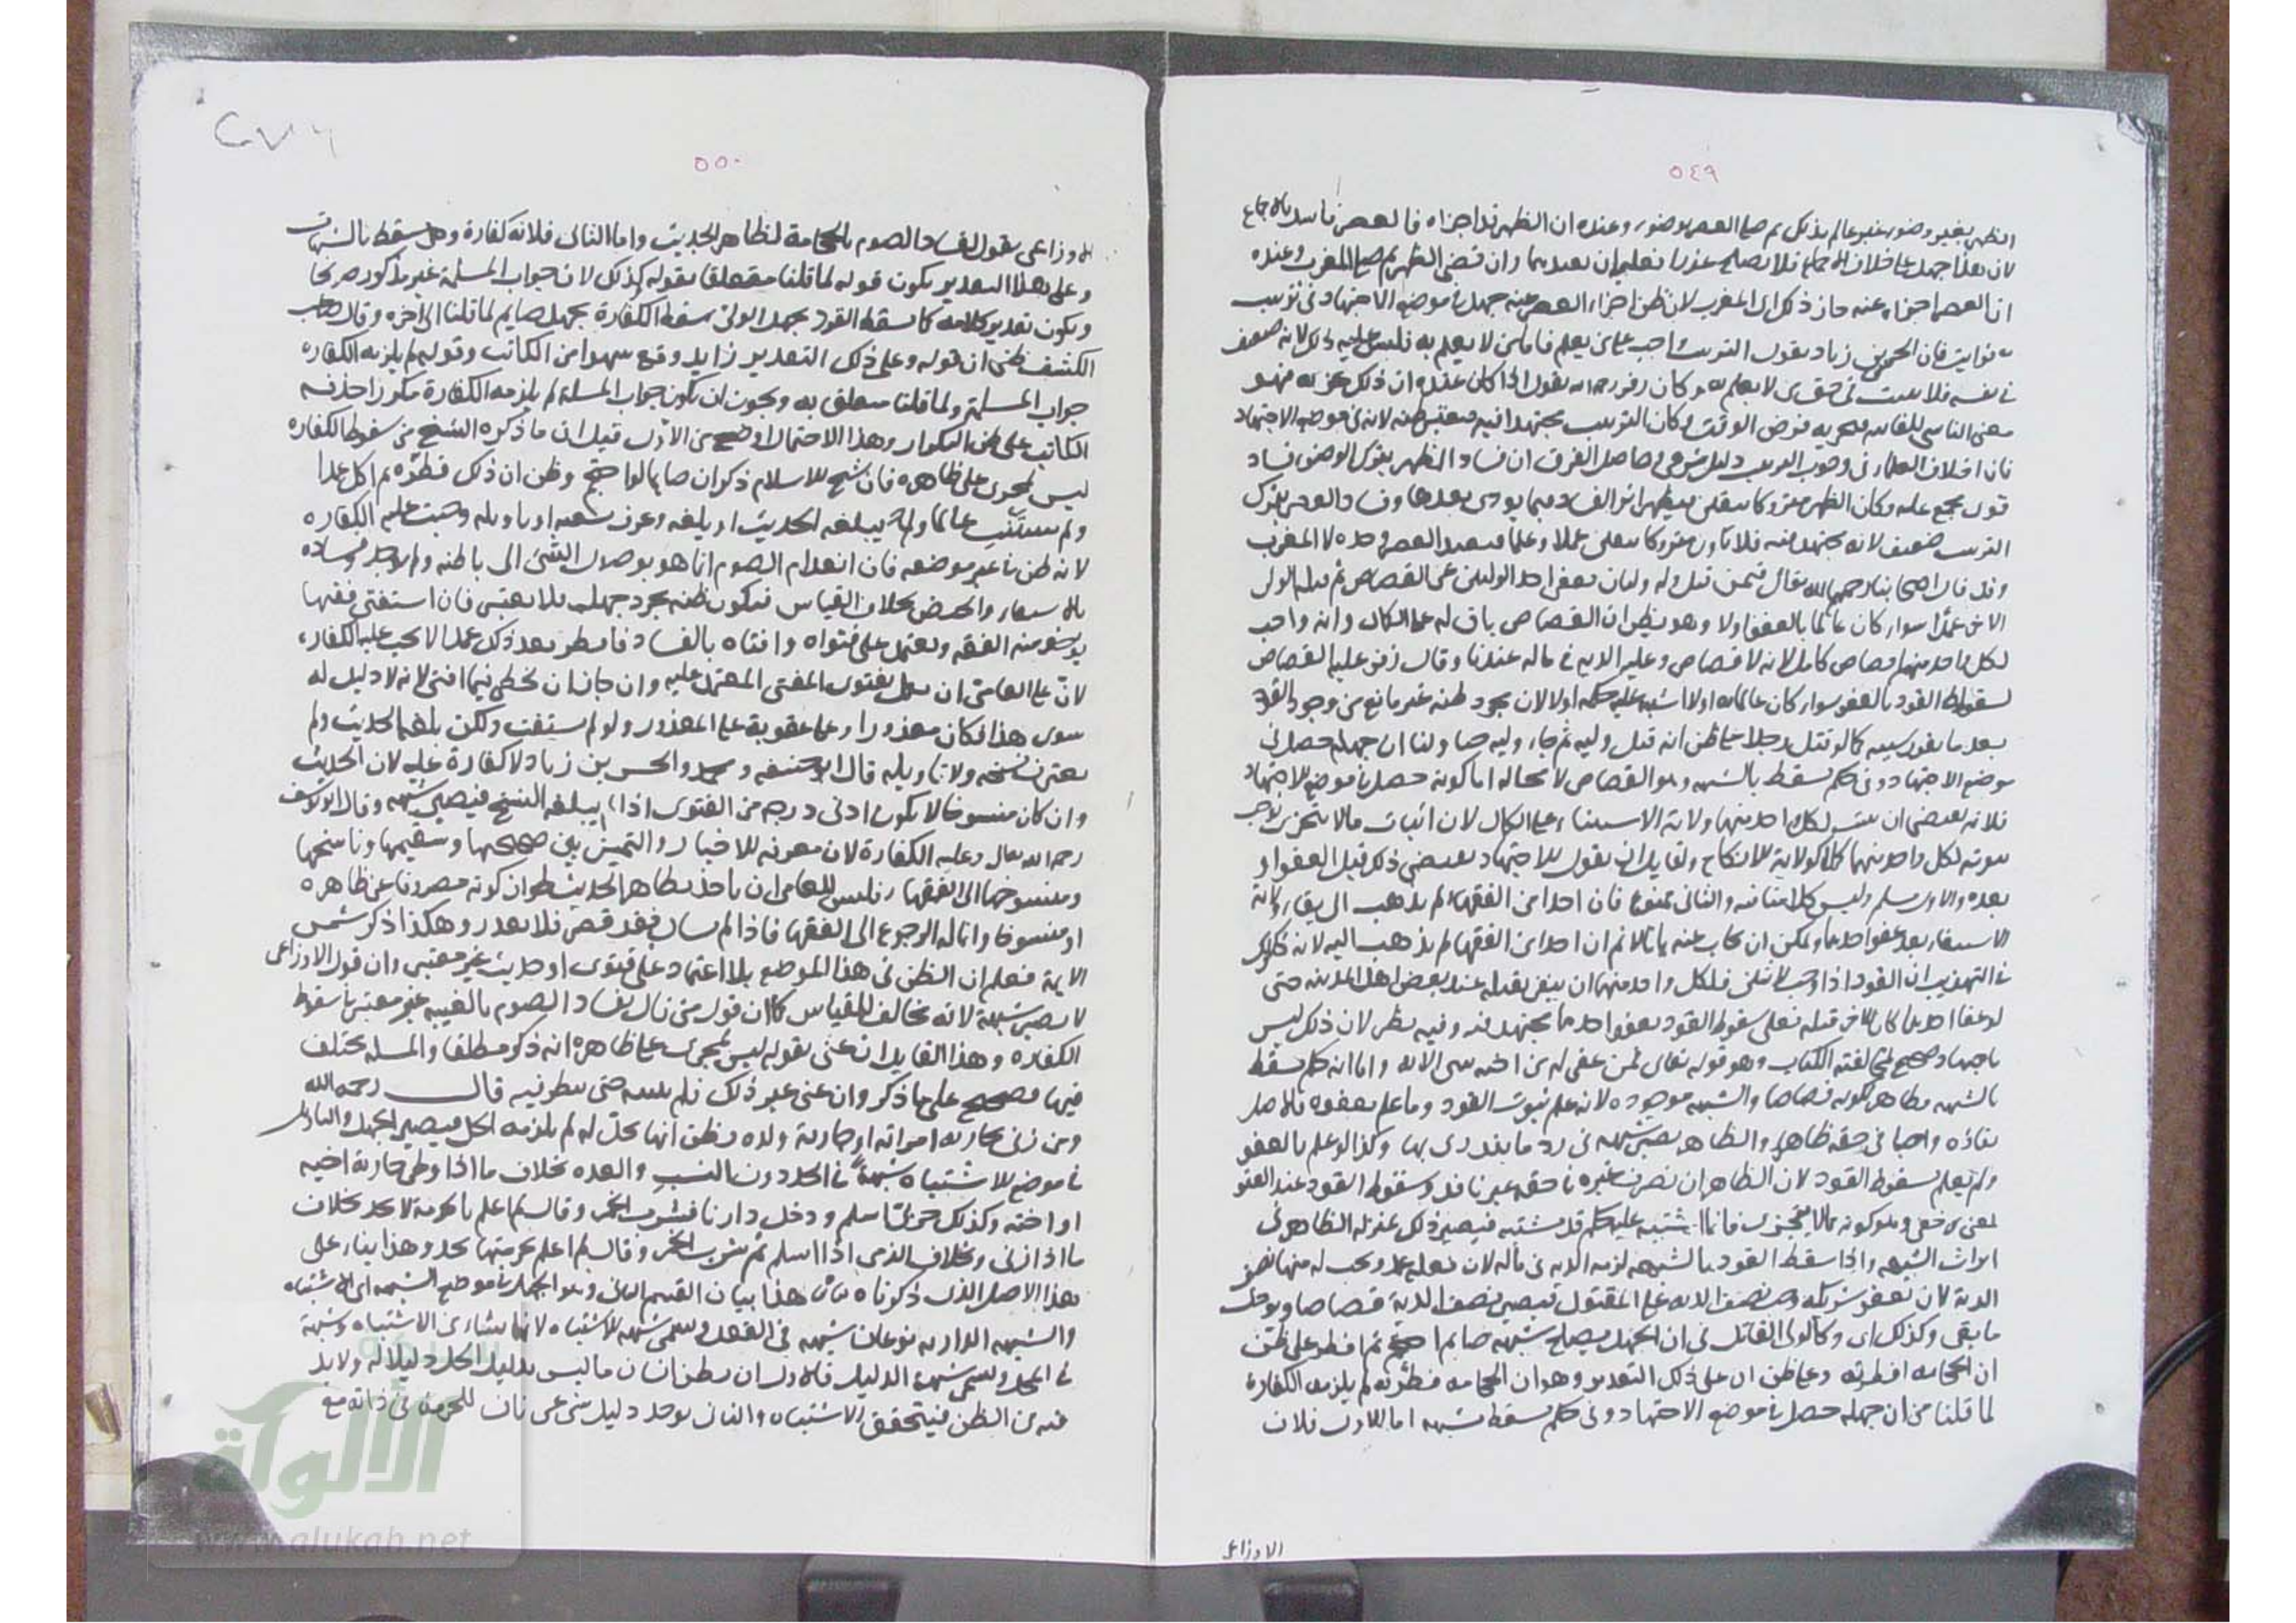 ٥٤٩
الظهر بغير وضوء غير عالم بذلك ثم صلى العصر بوضوء وعنده ان الظهر قد اجزاه فالعصر فاسد بالاجماع
لان هذا جهل على خلاف الاجماع فلا يصلح عذرا فعليه ان يعيدهما وان قضى الظهر ثم صلى المغرب وعنده
ان العصر اجزاء عنه جاز ذلك اى المغرب لان ظن اجزاء العصر عنه جهل فى موضع الاجتهاد فى ترتيب
الفوايت فان الحسن بن زياد يقول الترتيب واجب على من يعلم فاما من لا يعلم به فليس عليه ذلك لانه ضعيف
فى نفسه فلا يثبت فى حق من لا يعلم به وكان زفر رحمه الله يقول اذا كان عنده ان ذلك يجزيه فهو
معنى الناسى للفايتة فيجزيه فرض الوقت وكان الترتيب مجتهدا فيه فيعتبر ظنه لانه فى موضع الاجتهاد
فان اختلاف العلماء فى وجوب الترتيب دليل شرعى وحاصل الفرق ان فساد الظهر بترك الوضوء فساد
قوى مجمع عليه وكان الظهر متروكا بيقين فيظهر اثر الفساد فيما يودى بعدها وفساد العصر بترك
الترتيب ضعيف لانه مجتهد فيه فلا يكون متروكا بيقين عملا وعلما فيعيد العصر وحده لا المغرب
وقد قال اصحابنا رحمهم الله تعالى فيمن قتل وله وليان فعفا احد الوليين عن القصاص ثم قتله الولى
الاخر عمدا سواء كان عالما بالعفو اولا وهو يظن ان القصاص باق له على الكمال وانه واجب
لكل واحد منهما قصاص كامل لانه لا قصاص وعليه الدية فى ماله عندنا وقال زفر عليه القصاص
لسقوط القود بالعفو سواء كان عالما به اولا اشتبه عليه حكمه اولا لان مجرد ظنه غير مانع من وجوب القود
بعد ما تقرر سببه كما لو قتل رجلا على ظن انه قتل وليه ثم جاء وليه حيا ولنا ان جهله حصل فى
موضع الاجتهاد وفى حكم يسقط بالشبهة وهو القصاص لا محالة اما كونه حصل فى موضع الاجتهاد
فلانه يقتضى ان يثبت لكل واحد منهما ولاية الاستيفاء على الكمال لان اثبات مالا يتجزى يوجب
ثبوته لكل واحد منهما كملا كولاية الانكاح ولقايل ان يقول الاجتهاد يقتضى ذلك قبل العفو او
بعده والاول مسلم وليس كلامنا فيه والثانى ممنوع فان احدا من الفقهاء لم يذهب الى بقاء ولاية
الاستيفاء بعد عفو احدهما ويمكن ان يجاب عنه بانا لا نم ان احدا من الفقهاء لم يذهب اليه لانه ذكر
فى التهذيب ان القود اذا وجب لاثنين فلكل واحد منهما ان ينفرد بقتله عند بعض اهل المدينة حتى
لو عفا احدهما كان للاخر قتله فعلى سقوط القود بعفو احدهما مجتهد فيه وفيه نظر لان ذلك ليس
باجتهاد صحيح لمخالفته الكتاب وهو قوله تعالى فمن عفى له من اخيه شى الاية واما انه حكم يسقط
بالشبهة فظاهر لكونه قصاصا والشبهة موجودة لانه علم ثبوت القود وما علم بعفوه فالاصل
بقاؤه واجبا فى حقه ظاهرا والظاهر يصير شبهة فى رد ما يندرى بها وكذا لو علم بالعفو
ولم يعلم بسقوط القود لان الظاهر ان تصرف غيره فى حقه غير نافذ وسقوط القود عند العفو
لمعنى خفى وهو كونه مما لا يتجزى فانما اشتبه عليه حكم قد يشتبه فيصير ذلك بمنزلة الظاهر فى
ايراث الشبهة واذا سقط القود بالشبهة لزمه الدية فى ماله لان فعله عمد ويحسب له منها نصف
الدية لان بعفو شريكه وجب نصف الدية على المقتول فيصير نصف الدية قصاصا ويوخذ
ما بقى وكذلك اى وكالولى القاتل فى ان الجهل يصلح شبهة صايم احتجم ثم افطر على ظن
ان الحجامة افطرته وعلى ظن ان على ذلك التقدير وهو ان الحجامة فطرته لم يلزمه الكفارة
لما قلنا من ان جهله حصل فى موضع الاجتهاد وفى حكم يسقط بشبهة اما الاول فلان
الاوزاعى
٥٥٠
الاوزاعى يقول بفساد الصوم بالحجامة لظاهر الحديث واما الثانى فلانه كفارة وهى تسقط بالشبهات
وعلى هذا التقدير يكون قوله لما قلنا متعلقا بقوله كذلك لان جواب المسلة غير مذكور صريحا
ويكون تقدير كلامه كما سقط القود بجهل الولى سقط الكفارة بجهل صايم لما قلنا الى اخره وقال صاحب
الكشف ظنى ان قوله وعلى ذلك التقدير زايد وقع سهوا من الكاتب وقوله لم يلزمه الكفارة
جواب المسلة ولما قلنا متعلق به ويجوز ان يكون جواب المسلة لم يلزمه الكفارة مكررا حذفه
الكاتب على ظن التكرار وهذا الاحتمال اوضح من الاول قيل ان ما ذكره الشيخ من سقوط الكفارة
ليس بمجرى على ظاهره فان شيخ الاسلام ذكر ان صايما لو احتجم وظن ان ذلك فطره ثم اكل عمدا
ولم يستفت عالما ولم يبلغه الحديث او بلغه وعرف نسخه او تاويله وجبت عليه الكفارة
لانه ظن فى غير موضعه فان انعدام الصوم انما هو بوصول الشى الى باطنه ولم يوجد وفساده
بالاستقاء والحيض بخلاف القياس فيكون ظنه مجرد جهل فلا يعتبر فان استفتى فقيها
يوخذ منه الفقه ويعتمد على فتواه وافتاه بالفساد فافطر بعد ذلك عمدا لا يجب عليه الكفارة
لان على العامى ان يعمل بفتوى المفتى المعتمد عليه وان جاز ان يخطى فيما افتى لانه لا دليل له
سوى هذا فكان معذورا ولا عقوبة على المعذور ولو لم يستفت ولكن بلغه الحديث ولم
يعرف نسخه ولا تاويله قال ابو حنيفة ومحمد والحسن بن زياد لا كفارة عليه لان الحديث
وان كان منسوخا لا يكون ادنى درجة من الفتوى اذا لم يبلغه النسخ فيصير شبهة وقال ابو يوسف
رحمه الله تعالى وعليه الكفارة لان معرفة الاخبار والتمييز بين صحيحها وسقيمها وناسخها
ومنسوخها الى الفقهاء فليس للعامى ان ياخذ بظاهر الحديث لجواز ان كونه مصروفا عن ظاهره
او منسوخا وانما له الرجوع الى الفقهاء فاذا لم يسال فقد قصر فلا يعذر وهكذا ذكر شمس
الايمة فعلم ان الظن فى هذا الموضع بلا اعتماد على فتوى او حديث غير معتبر وان قول الاوزاعى
لا يصير شبهة لانه مخالف للقياس كما ان قول من قال بفساد الصوم بالغيبة غير معتبر فى سقوط
الكفارة وهذا القايل ان عنى بقوله ليس بمجرى على ظاهره انه ذكر مطلقا والمسلة مختلف
فيها فصحيح على ما ذكر وان عنى غير ذلك فلم يبينه حتى ينظر فيه قال رحمه الله
ومن زنى بجارية امراته او جارية ولده وظن انها تحل له لم يلزمه الحد فيصير الجهل والتاويل
فى موضع الاشتباه شبهة فى الحد دون النسب والعدة بخلاف ما اذا وطى جارية اخيه
او اخته وكذلك حربى اسلم ودخل دارنا فشرب الخمر وقال لم اعلم بالحرمة لا يحد بخلاف
ما اذا زنى وبخلاف الذمى اذا اسلم ثم شرب الخمر وقال لم اعلم بحرمتها يحد وهذا بناء على
هذا الاصل الذى ذكرناه هذا بيان القسم الثانى وهو الجهل فى موضع الشبهة اى الاشتباه
والشبهة الدارية نوعان شبهة فى الفعل وتسمى شبهة الاشتباه لانها تنشاء من الاشتباه وشبهة
فى المحل وتسمى شبهة الدليل فالاول ان يظن انسان ما ليس بدليل الحل دليلا له ولا بد
فيه من الظن فيتحقق الاشتباه والثانى يوجد دليل شرعى ناف للحرمة فى ذاته مع
الألوكة
www.alukah.net